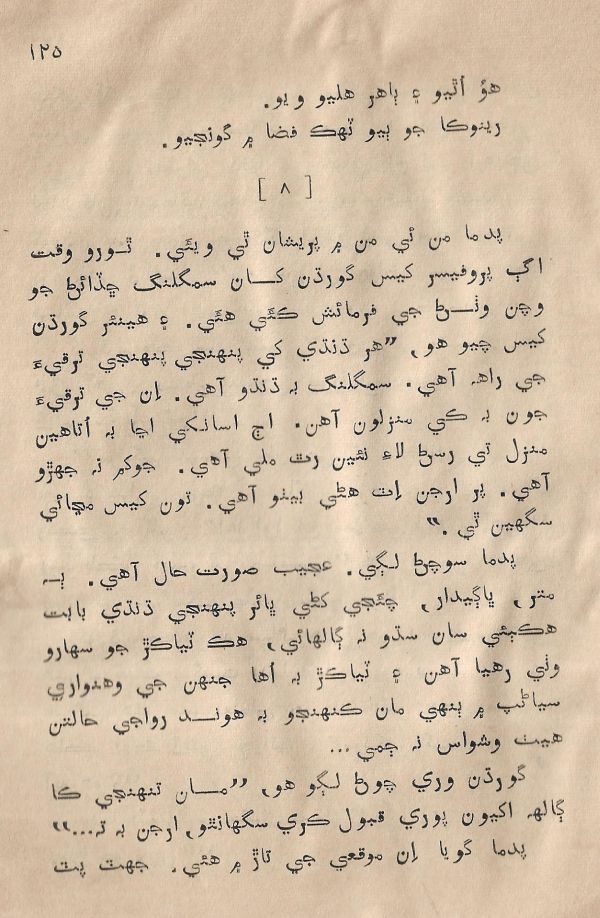 ١٢٥
هوُ اُٿيو ۽ ٻاهر هليو ويو.
رينوڪا جو ٻيو ٽهڪ فضا ۾ گونجيو.
[ ٨ ]
پدما من ئي من ۾ پريشان ٿي ويئي. ٿورو وقت
اڳ پروفيسر کيس گورڌن کان سمگلنگ ڇڏائڻ جو
وچن وٺڻ جي فرمائش ڪئي هئي. ۽ هينئر گورڌن
کيس چيو هو, ”هر ڌنڌي کي پنهنجي پنهنجي ترقيءَ
جي راهہ آهي. سمگلنگ بہ ڌنڌو آهي. اِن جي ترقيءَ
جون بہ ڪي منزلون آهن. اڄ اسانکي اڃا بہ اُتاهين
منزل تي رسڻ لاءِ نئين رٿ ملي آهي. جوکم نہ جهڙو
آهي. پر ارجن اِٿ هڻي بيٺو آهي. تون کيس مڃائي
سگهين ٿي.“
پدما سوچڻ لڳي. عجيب صورت حال آهي. ٻہ
متر, ڀاڱيدار, چئجي کڻي ڀائر پنهنجي ڌنڌي بابت
هڪٻئي سان سڌو نہ ڳالهائي, هڪ ٽياڪڙ جو سهارو
وٺي رهيا آهن ۽ ٽياڪڙ بہ اُها جنهن جي وهنواري
سياڻپ ۾ ٻنهي مان ڪنهنجو بہ هوند رواجي حالتن
هيٺ وشواس نہ ڄمي...
گورڌن وري چوڻ لڳو هو, ”مان تنهنجي ڪا
ڳالهہ اکيون ٻوري قبول ڪري سگهانٿو, ارجن بہ تہ...“
پدما گويا اِن موقعي جي تاڙ ۾ هئي. جهٽ پٽ